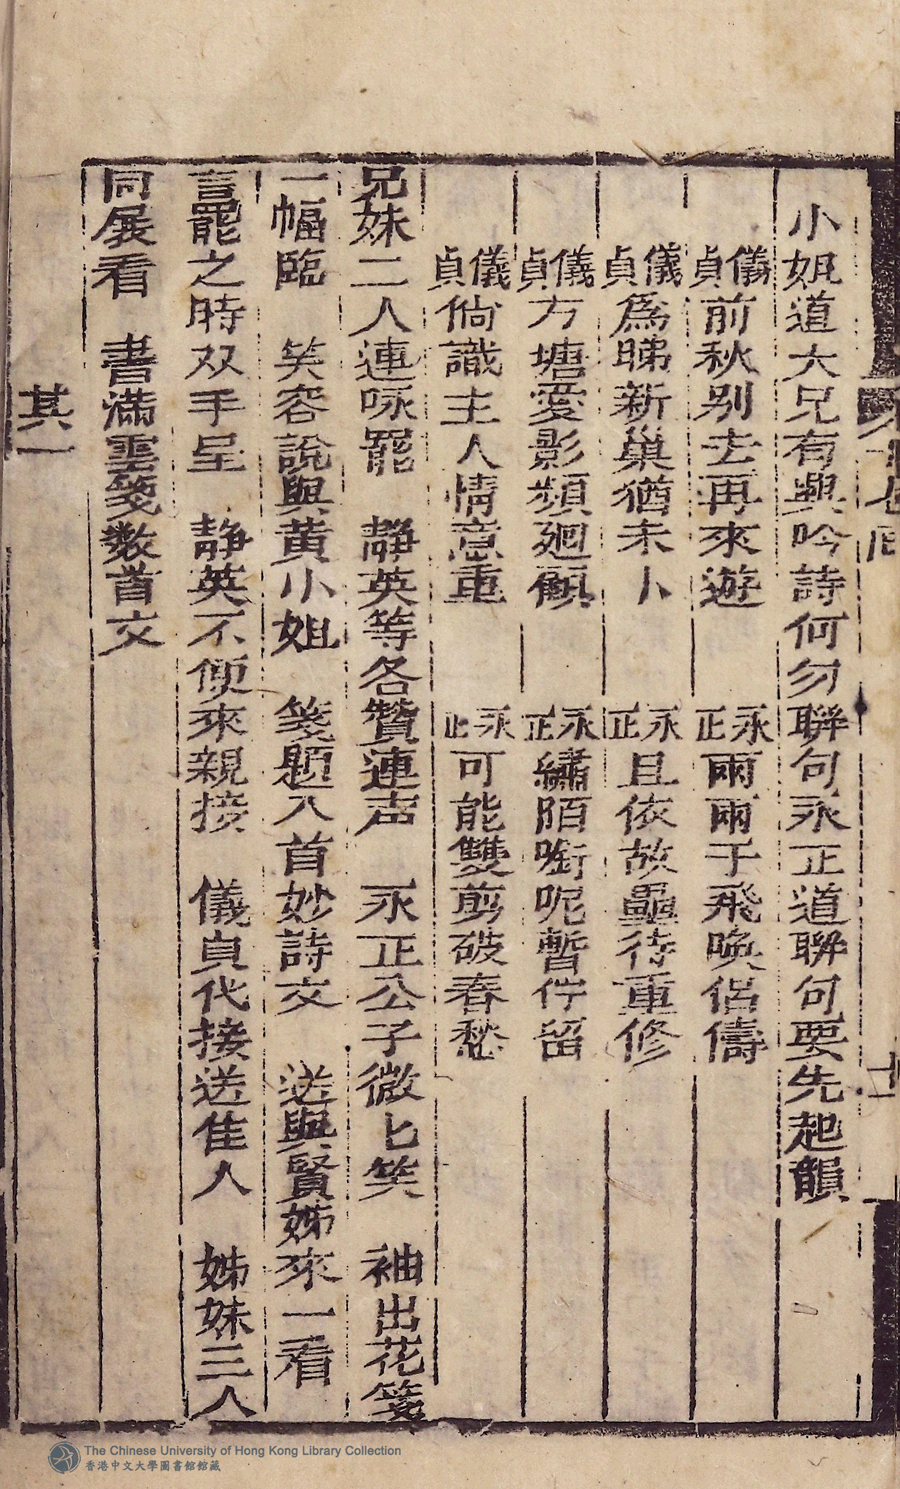 小姐道大兄有興吟詩何勿聯句永正道聯句要先起韻
儀貞前秋别去再來遊 永正兩兩于飛喚侶儔
儀貞爲睇新巢猶未卜 永正且依故壘待重修
儀貞方塘愛影頻廻顧 永正繡陌啣呢暫佇留
儀貞倘識主人情意重 永正可能雙剪破春愁
兄妹二人連咏罷 靜英等各贊連声 永正公子微匕笑 袖出花箋
一幅臨 笑容說與黄小姐 箋題八首妙詩文 送與賢姊來一看
言罷之時双手呈 静英不便來親接 儀貞代接送佳人 姊妹三人
同展看 書滿雲箋数首文
其一
十一
The Chinese University of Hong Kong Library Collection
香港中文大學圖書館館藏